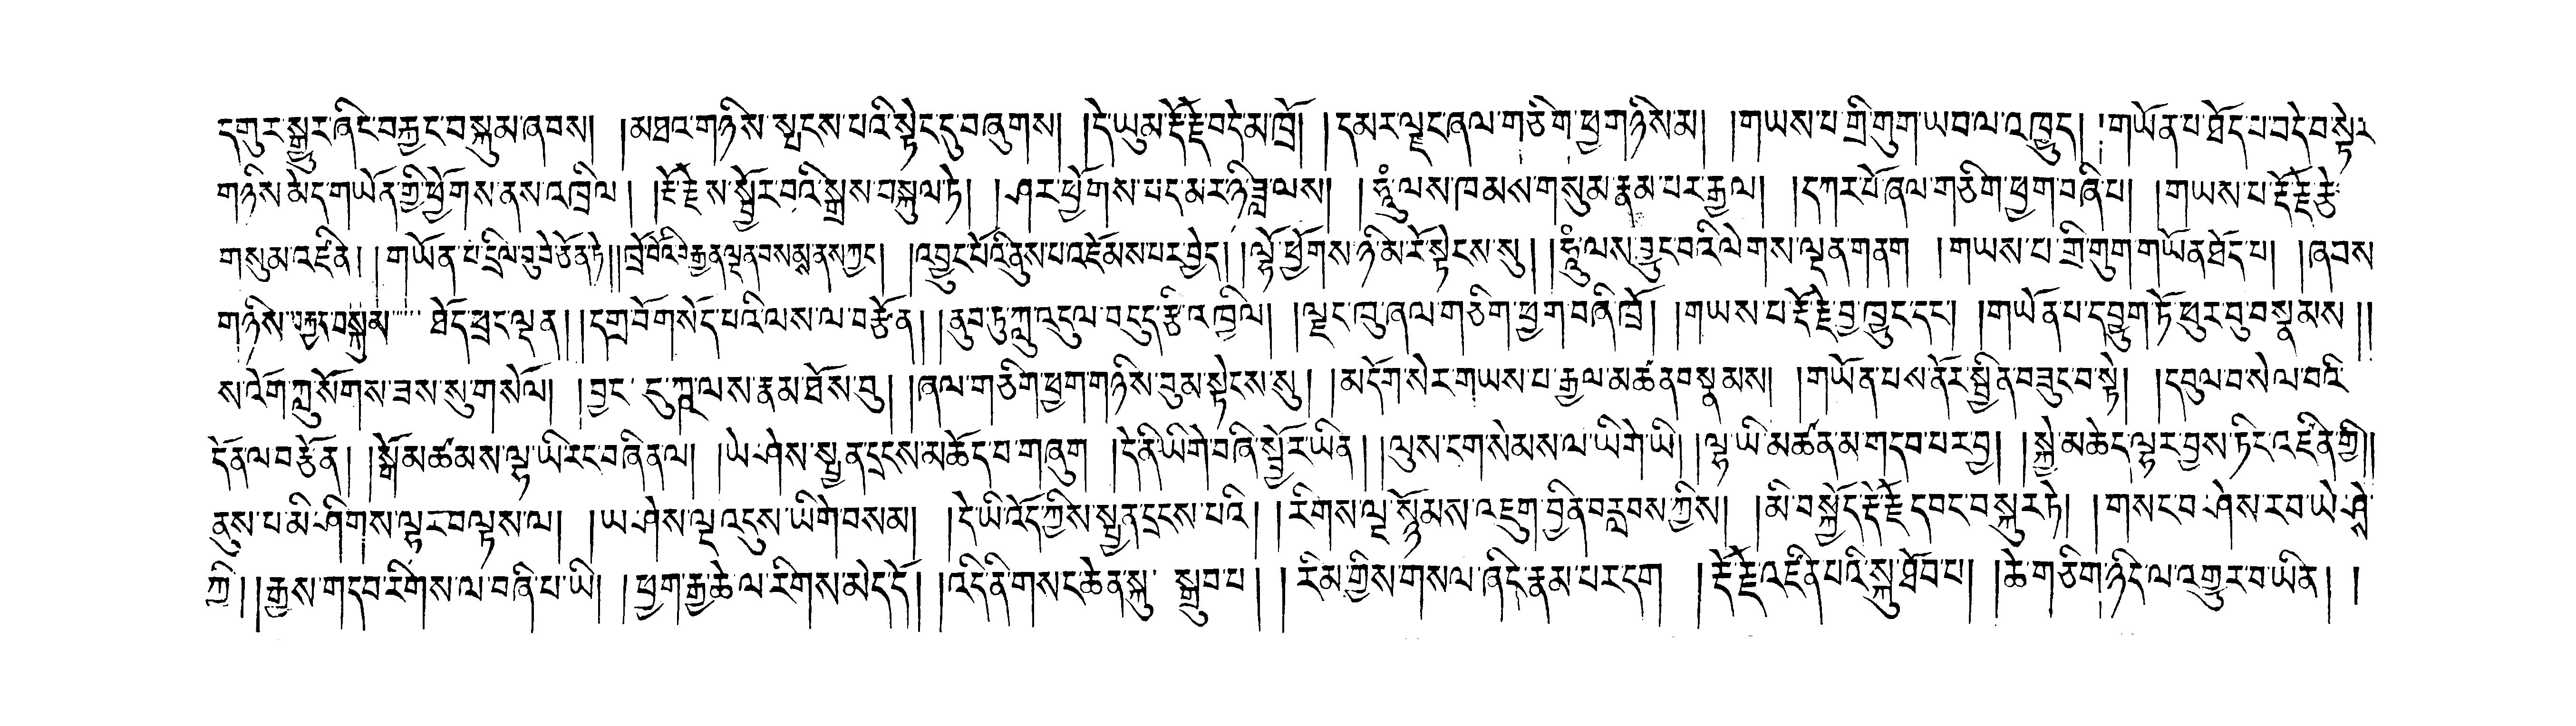 དགུར་སྒྱུར་ཞིང་བརྐྱང་བསྐུམ་ཞབས། །མཐའ་གཉིས་སྤངས་པའི་སྟེང་དུ་བཞུགས། །དེ་ཡུམ་རྡོ་རྗེ་བདེ་མ་ཁྲོ། །དམར་ལྗང་ཞལ་གཅིག་ཕྱག་གཉིས་མ། །གཡས་པ་གྲི་གུག་ཡབ་ལ་འཁྱུད། །གཡོན་པ་ཐོད་པ་བདེ་བ་སྟེར
གཉིས་མེད་གཡོན་གྱི་ཕྱོགས་ནས་འཁྲིལ། །རྡོ་རྗེས་སྦྱོར་བའི་སྒྲས་བསྐུལ་ཏེ། །ཤར་ཕྱོགས་པད་མར་ཉི་ཟླ་ལས། །ཧཱུཾ་ལས་ཁམས་གསུམ་རྣམ་པར་རྒྱལ། །དཀར་པོ་ཞལ་གཅིག་ཕྱག་བཞི་པ། །གཡས་པ་རྡོ་རྗེ་རྩེ་
གསུམ་འཛིན། །གཡོན་པ་དྲིལ་བུ་བེ་ཅོན་ཏེ། །ཁྲོ་བོའི་རྒྱན་ལྡན་བསམ་ནས་ཀྱང༌། །འབྱུང་པོའི་ནུས་པ་འཇོམས་པར་བྱེད། །ལྷོ་ཕྱོགས་ཉི་མ་རོ་སྟེངས་སུ། །ཧཱུཾ་ལས་བྱུང་བའི་ལེགས་ལྡན་གནག །གཡས་པ་གྲི་གུག་གཡོན་ཐོད་པ། །ཞབས
གཉིས་བརྐྱང་བསྐུམ་ཐོད་ཕྲང་ལྡན། །དགྲ་བོ་གསོད་པའི་ལས་ལ་བརྩོན། །ནུབ་ཏུ་ཀླུ་འདུལ་བདུད་རྩི་འཁྱིལ། །ལྗང་ཁུ་ཞལ་གཅིག་ཕྱག་བཞི་ཁྲོ། །གཡས་པ་རྡོ་རྗེ་བྱ་ཁྱུང་དང༌། །གཡོན་པ་དབྱུག་ཏོ་ཕུར་བུ་བསྣམས། །
ས་འོག་ཀླུ་སོགས་ཟས་སུ་གསོལ། །བྱང་དུ་ཀླུ་ལས་རྣམ་ཐོས་བུ། །ཞལ་གཅིག་ཕྱག་གཉིས་དུམ་སྟེངས་སུ། །མདོག་སེར་གཡས་པ་རྒྱལ་མཚན་བསྣམས། །གཡོན་པས་ནོར་སྦྱིན་བཟུང་བ་སྟེ། །དབུལ་བ་སེལ་བའི
དོན་ལ་བརྩོན། །སྒོ་མཚམས་ལྷ་ཡི་རིང་བཞིན་ལ། །ཡེ་ཤེས་སྤྱན་དྲངས་མཆོད་བ་གཞུག །དེ་ནི་ཡི་གེ་བཞི་སྦྱོར་ཡིན། །ལུས་ངག་སེམས་ལ་ཡི་གེ་ཡི། །ལྷ་ཡི་མཚན་མ་གདབ་པར་བྱ། །སྐྱེ་མཆེད་ལྷར་བྱས་ཏིང་འཛིན་གྱི། །
ནུས་པ་མི་ཤིགས་ལྷར་བལྟས་ལ། །ཡ་ཤེས་ལྔ་འདུས་ཡི་གེ་བསམ། །དེ་ཡི་འོད་ཀྱིས་སྤྱན་དྲངས་པའི། །རིགས་ལྔ་སྙོམས་འཇུག་བྱིན་བརླབས་ཀྱིས། །མི་བསྐྱོད་རྡོ་རྗེ་དབང་བསྐུར་ཏེ། །གསང་བ་ཤེས་རབ་ཡེ་ཤེ་
ཀྱི། །རྒྱས་གདབ་རིགས་ལ་བཞི་པ་ཡི། །ཕྱག་རྒྱ་ཆེ་ལ་རིགས་མེད་དོ། །འདི་ནི་གསང་ཆེན་སྐུ་སྒྲུབ་པ། །རིམ་གྱིས་གསལ་ཞིང་རྣམ་པར་དག །རྡོ་རྗེ་འཛིན་པའི་སྐུ་ཐོབ་པ། །ཆེ་གཅིག་ཉིད་ལ་འགྱུར་བ་ཡིན། །